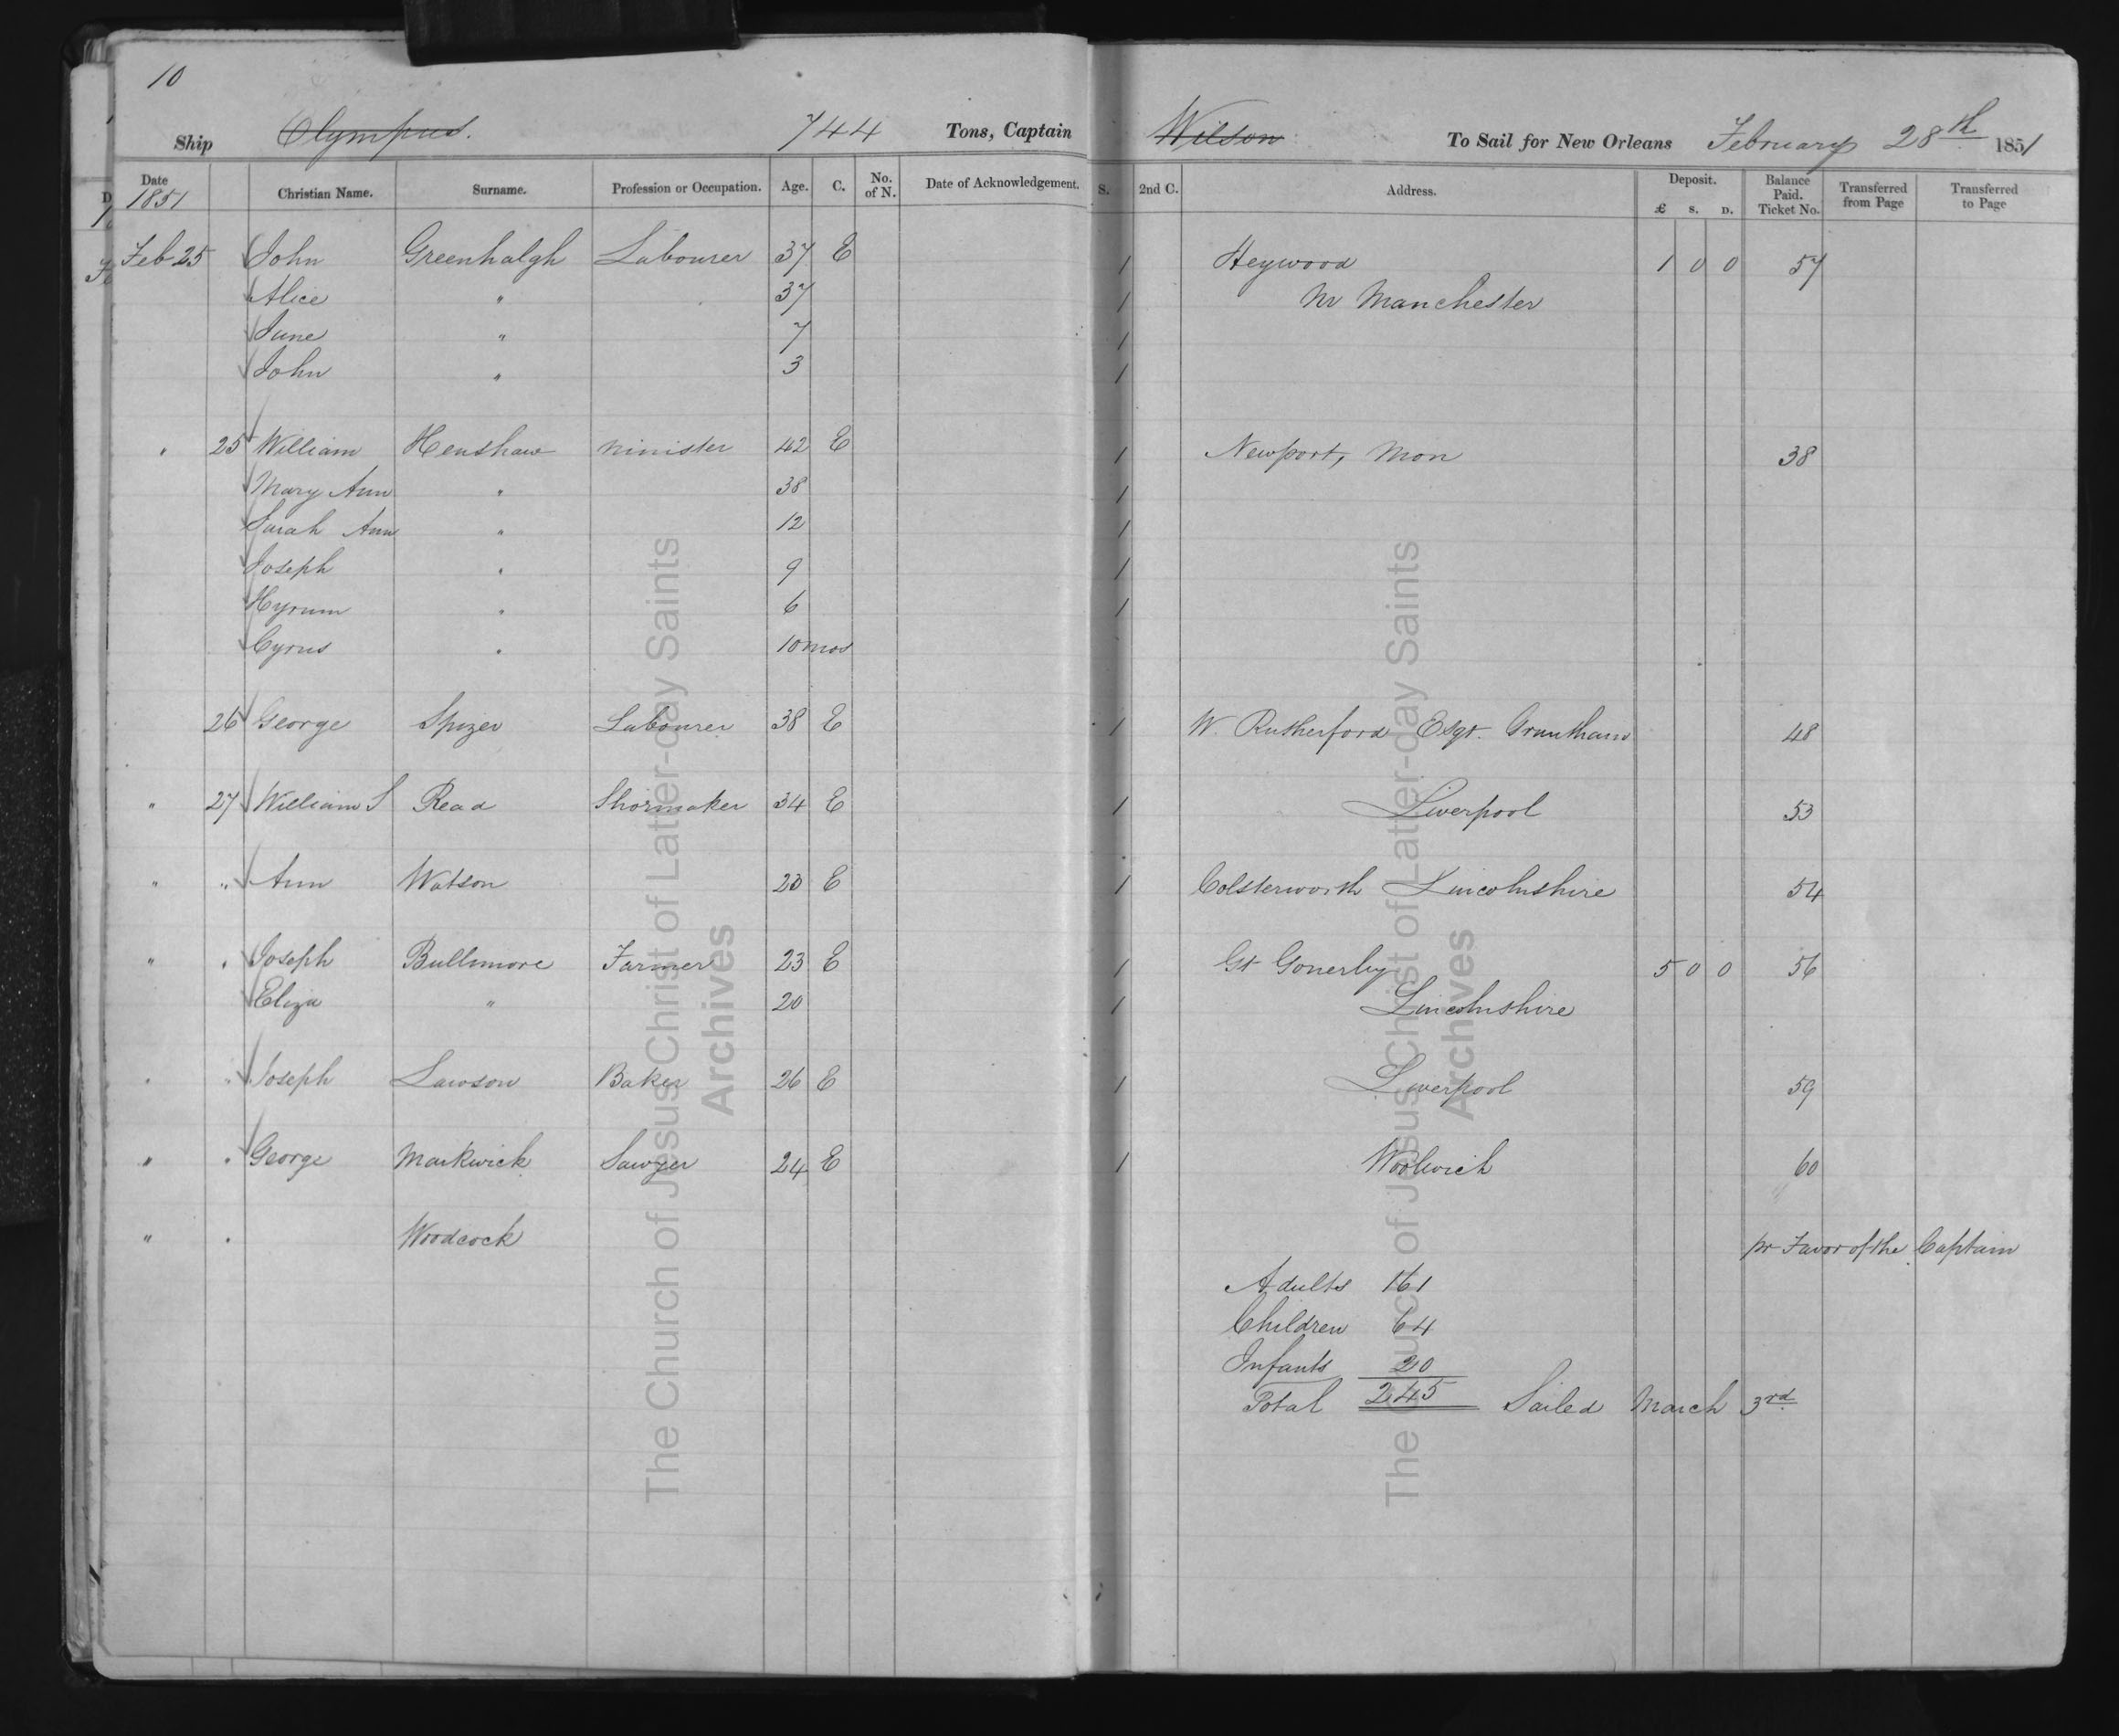 10
Ship Olympus. 744 Tons, Captain Wilson To Sail for New Orleans February 28th 1851
Date 1851 Christian Name. Surname. Profession or Occupation. Age. C. No. of N. Date of Acknowledgement. S. 2nd C. Address. Deposit. £ S. D. Balance Paid. Ticket No. Transferred from Page Transferred to Page
Feb 25 John Greenhalgh Labourer 37 E 1 Heywood 1 0 0 57
Alice " 37 1 Nr Manchester
Jane " 7 1
John " 3 1
" 25 William Henshaw minister 42 E 1 Newport, Mon 38
Mary Ann " 38 1
Sarah Ann " 12 1
Joseph " 9 1
Hyrum " 6 1
Cyrus " 10 mos
26 George Spizer Labourer 38 E 1 W. Rutherford Esqr. Grantham 48
" 27 William S Read Shormaker 34 E 1 Liverpool 53
" " Ann Watson 20 E 1 Colsterworth Lincolnshire 54
" " Joseph Bullimore Farmer 23 E 1 Gt Gonerby 5 0 0 56
Eliza " 20 1 Lincolnshire
" " Joseph Lawson Baker 26 E 1 Liverpool 59
" " George Markwick Sawyer 24 E 1 Woolwich 60
" " Woodcock pr Favor of the Captain
Adults 161
Children 64
Infants 20
Total 245 Sailed March 3rd
The Church of Jesus Christ of Latter-day Saints
Archives
The Church of Jesus Christ of Latter-day Saints
Archives